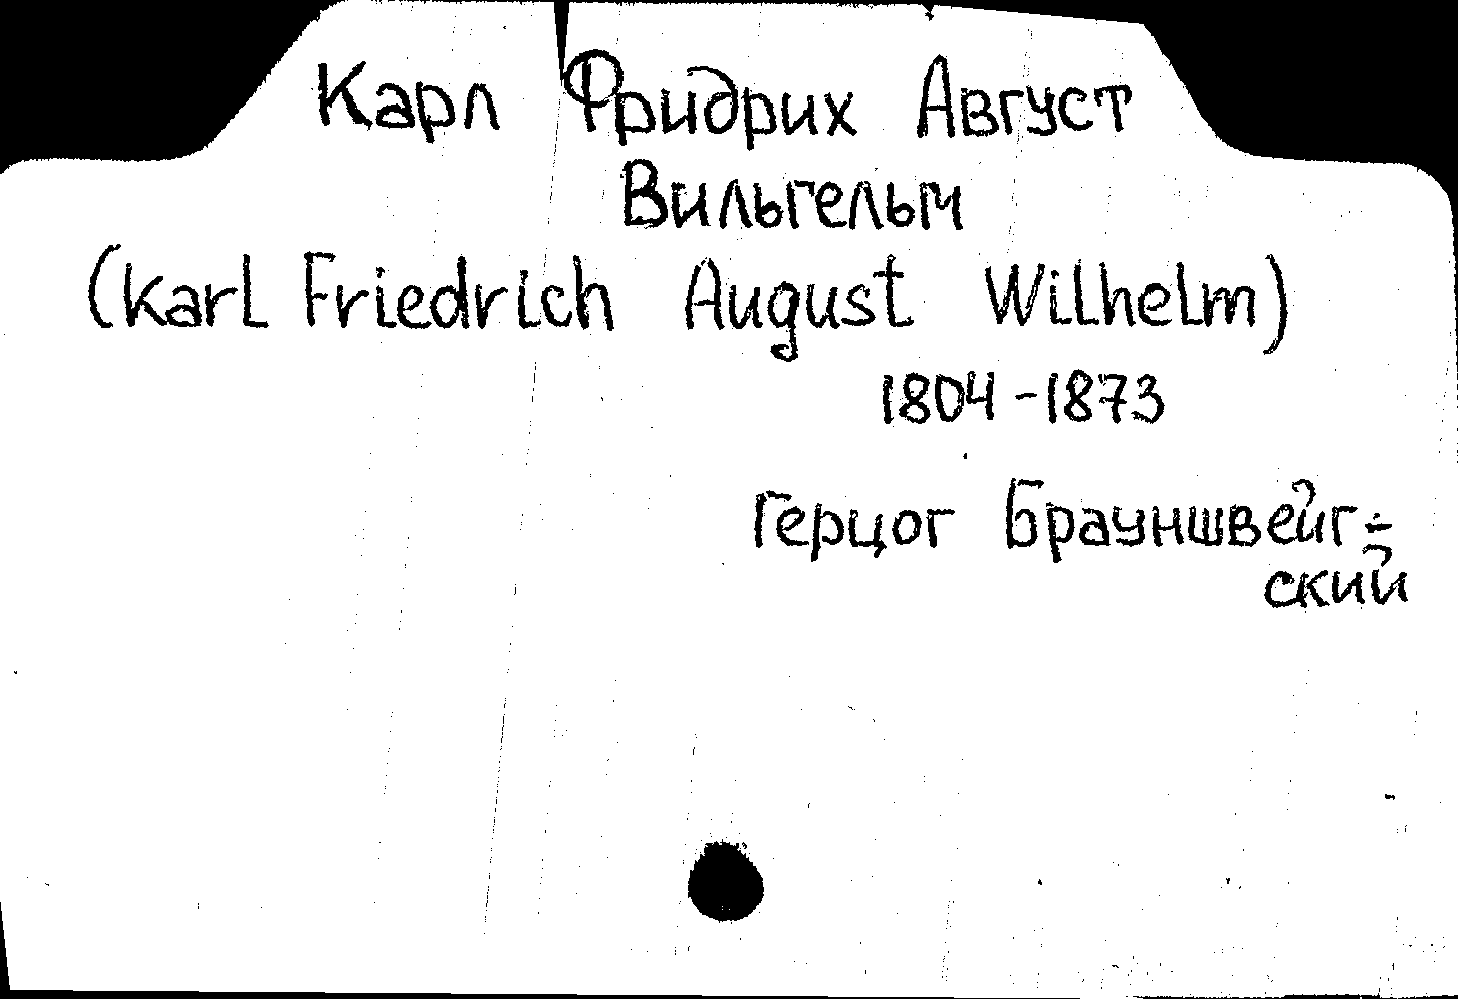 Карл Фридрих Август
Вильгельм
(Karl Friedrich August Wilhelm)
1804-1873
Герцог Брауншвейг-
ский